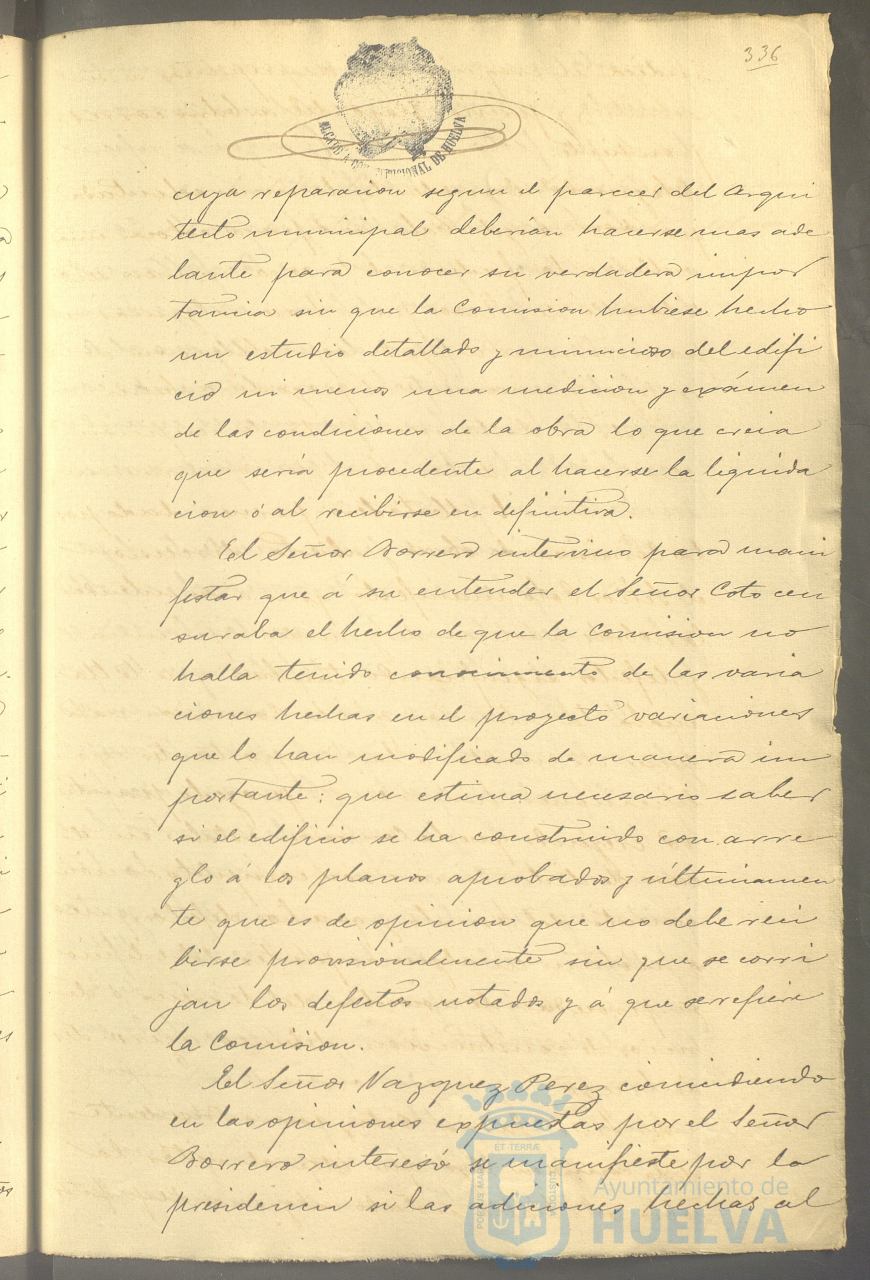 336
ALCALDIA CONSTITUCIONAL DE HUELVA
cuya reparacion segun el parecer del Arqui
tecto municipal deberian hacerse mas ade
lante para conocer su verdadera impor
tancia sin que la Comision hubiese hecho
un estudio detallado y minucioso del edifi
cio ni menos una medicion y exámen
de las condiciones de la obra lo que creia
que seria procedente al hacerse la liquida
cion ó al recibirse en definitiva.
El Señor Borrero intervino para mani
festar que á su entender el Señor Coto cen
suraba el hecho de que la Comision no
halla tenido conocimiento de las varia
ciones hechas en el proyecto variaciones
que lo han modificado de manera im
portante: que estima necesario saber
si el edificio se ha construido con arre
glo á los planos aprobados y últimamen
te que es de opinion que no debe reci
birse provisionalmente sin que se corri
jan los defectos notados y á que se refiere
la Comision.
El Señor Vazquez Perez coincidiendo
en las opiniones expuestas por el Señor
Borrero interesó se manifieste por la
presidencia si las adiciones hechas al
ET TERRÆ
PORTUS MARIS
CUSTODIA
Ayuntamiento de
HUELVA